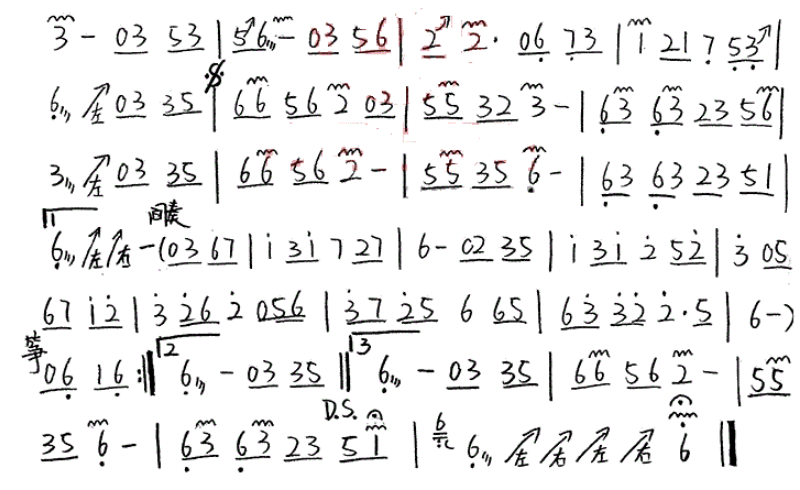 3 - 03 53 | 56 - 03 56 | 2 2· 06 73 | 1 21 7 53 |
6 左 03 35 | 66 56 2 03 | 55 32 3 - | 63 63 23 56 |
3 左 03 35 | 66 56 2 - | 55 35 6 - | 63 63 23 51 |
1 间奏
6 左右 - (03 67 | i 3i 7 27 | 6 - 02 35 | i 3i 2̇ 52̇ | 3̇ 05
67 i2̇ | 3̇ 2̇6 2̇ 056 | 3̇7 2̇5 6 65 | 63̇ 3̇2̇ 2̇·5 | 6 -)
筝 06 16 :‖ 2 6 - 03 35 ‖ 3 6 - 03 35 | 66 56 2 - | 55
D.S.
35 6 - | 63 63 23 5i | 6 左右左右 6 ‖